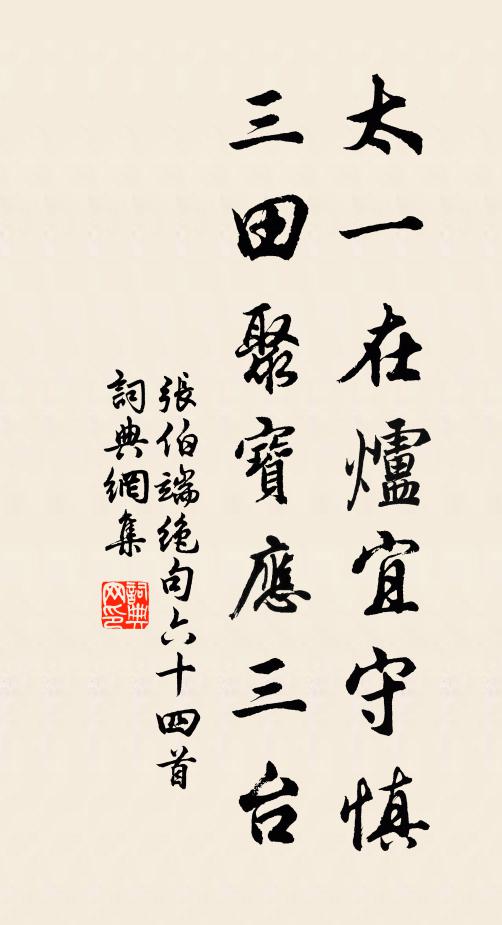 太一在爐宜守慎
三田聚寶應三台
張伯端絕句六十四首
詞典網集
詞典
网印